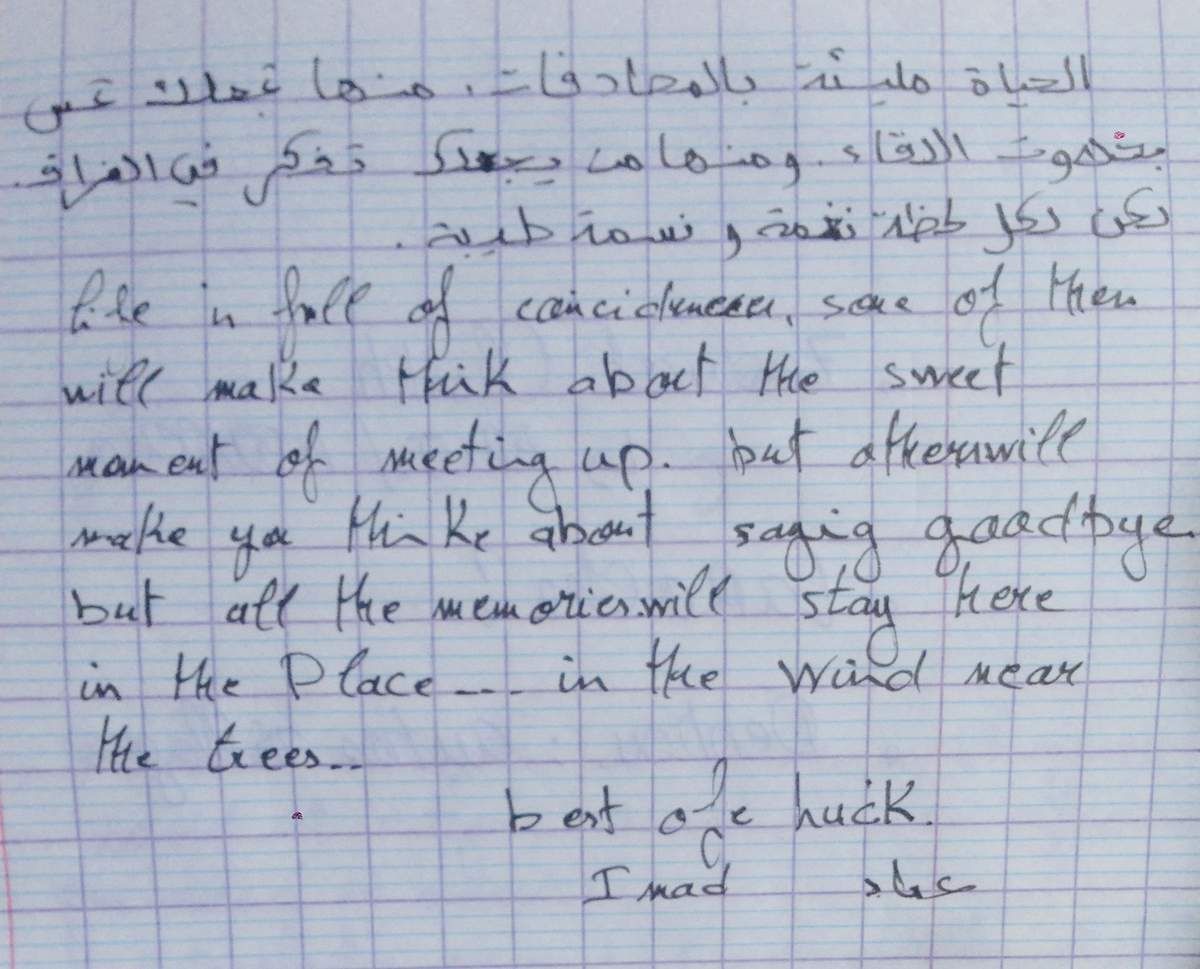 الحياة مليئة بالمصادفات، منها تجعلك تحس
اللقاء. ومنها من يجعلك تفكر في الفراق.
لكن لكل لحظات نغمة و نسمة طيبة.
life is full of concidences, some of them
will make think about the sweet
moment of meeting up. but others will
make you thinke about sayig goodbye.
but all the memories will stay here
in the Place --- in the Wind near
the trees...
best ofe luck.
Imad عماد